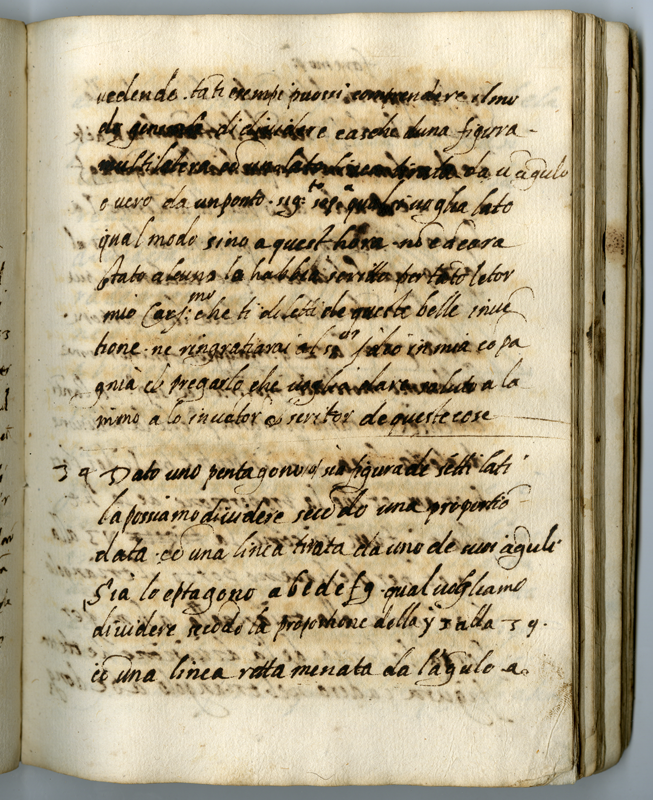 vedendo tati esempi puossi comprendere il mo
do generale di dividere casche duna figura
multilatera co una lato linea tirata da u agulo
o vero da un ponto sig:to sopa qual si voglia lato
qual modo sino a quest hora no ed cara
stato alcuno la habbia scritto per tato letor
mio Cars:mo che ti diletti de queste belle inve
tione ne ringratiarai al s dio in mia co pa
gnia et pregarlo che voglia dare saluto a la
nimo a lo invetor & scritor de queste cose
34 Dato uno pentagono sia figura de setti lati
la possiamo dividere secodo una proportio
data co una linea tirata da uno de suoi aguli
Sia lo eptagono a b c d e f g qual vogliamo
dividere secodo la proportione della y alla
co una linea retta menata da l'agulo a